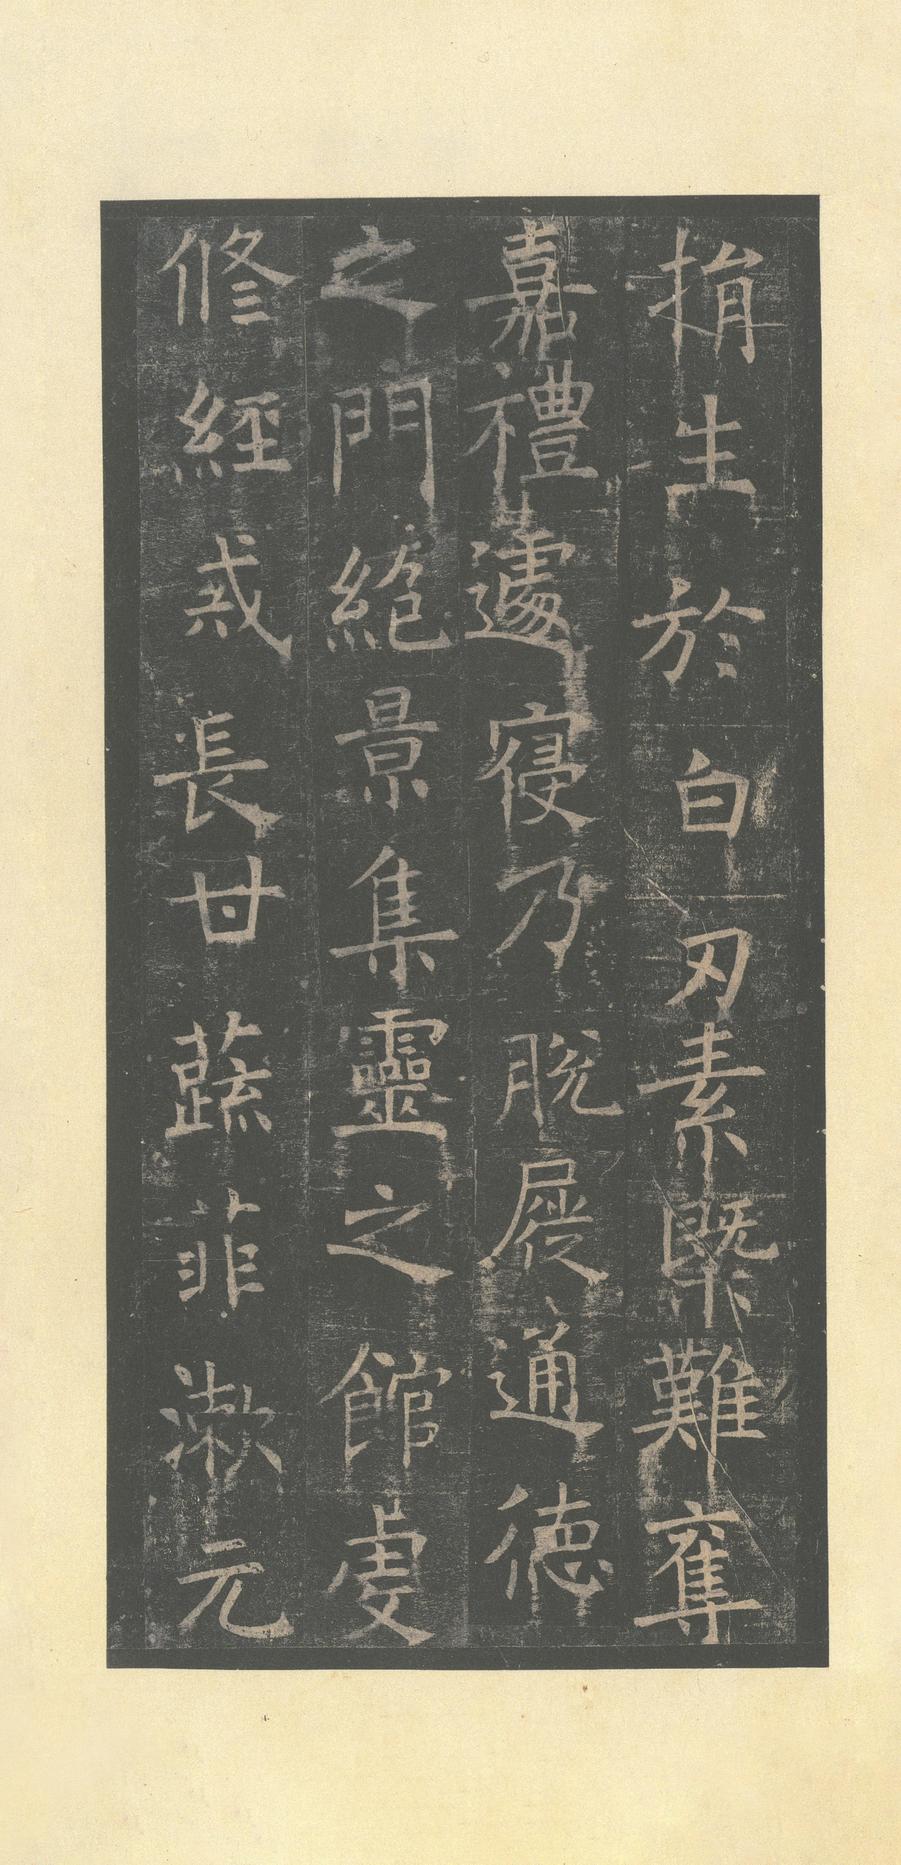 捐生於白刃素槩難奪
嘉禮遽寑乃脫屣通德
之門絕景集靈之館虔
修經戒長甘蔬菲漱元